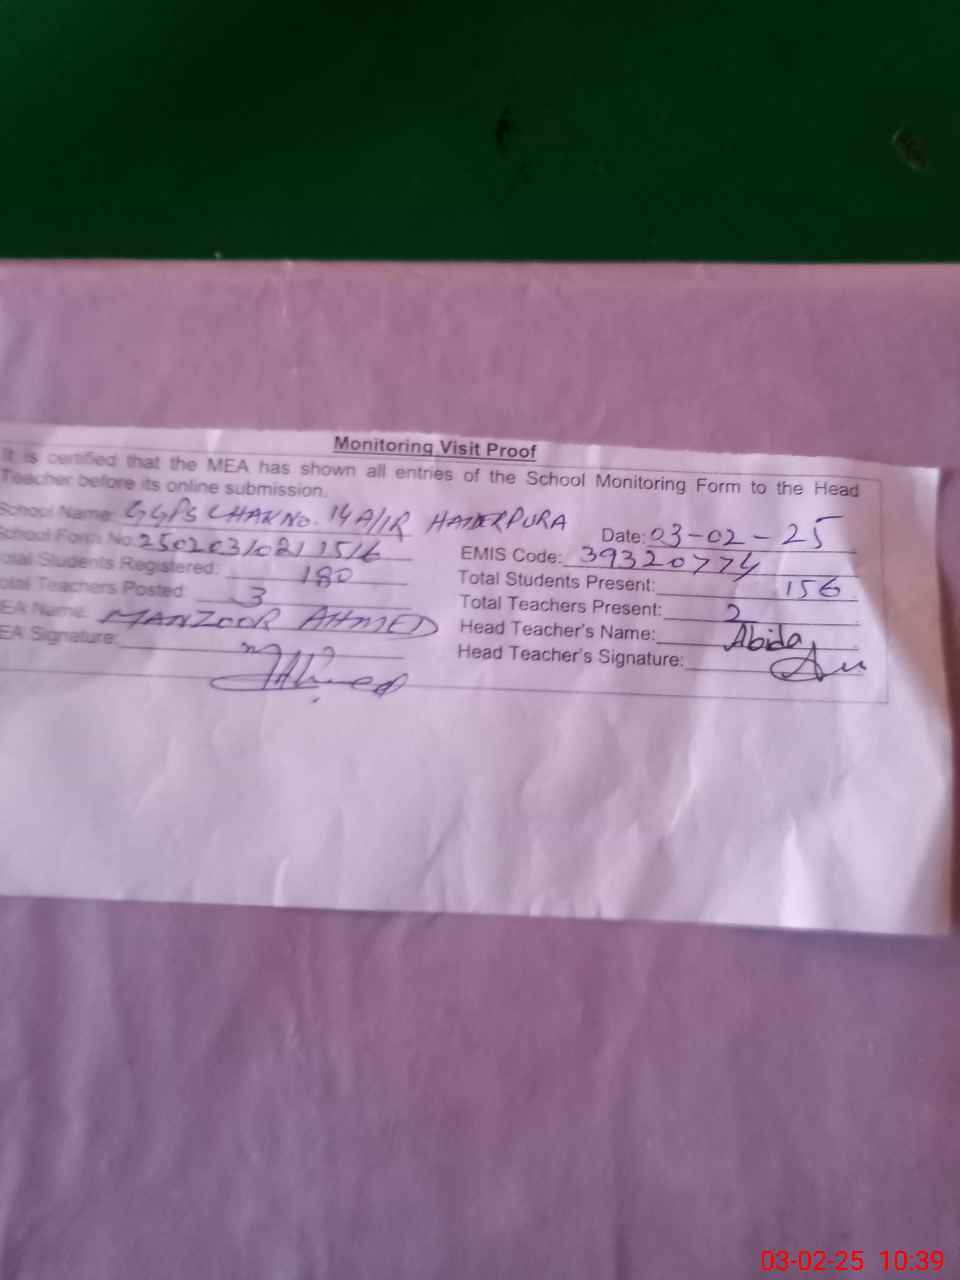 Monitoring Visit Proof
It is certified that the MEA has shown all entries of the School Monitoring Form to the Head
Teacher before its online submission.
School Name: GGPS CHAK No. 14 A/1R HAIDERPURA Date: 03-02-25
School Form No: EMIS Code: 39320774
otal Students Registered: 180 Total Students Present: 156
otal Teachers Posted: 3 Total Teachers Present: 2
EA Name: MANZOOR AHMED Head Teacher's Name: Abida
EA Signature: Ahmed Head Teacher's Signature:
03-02-25 10:39